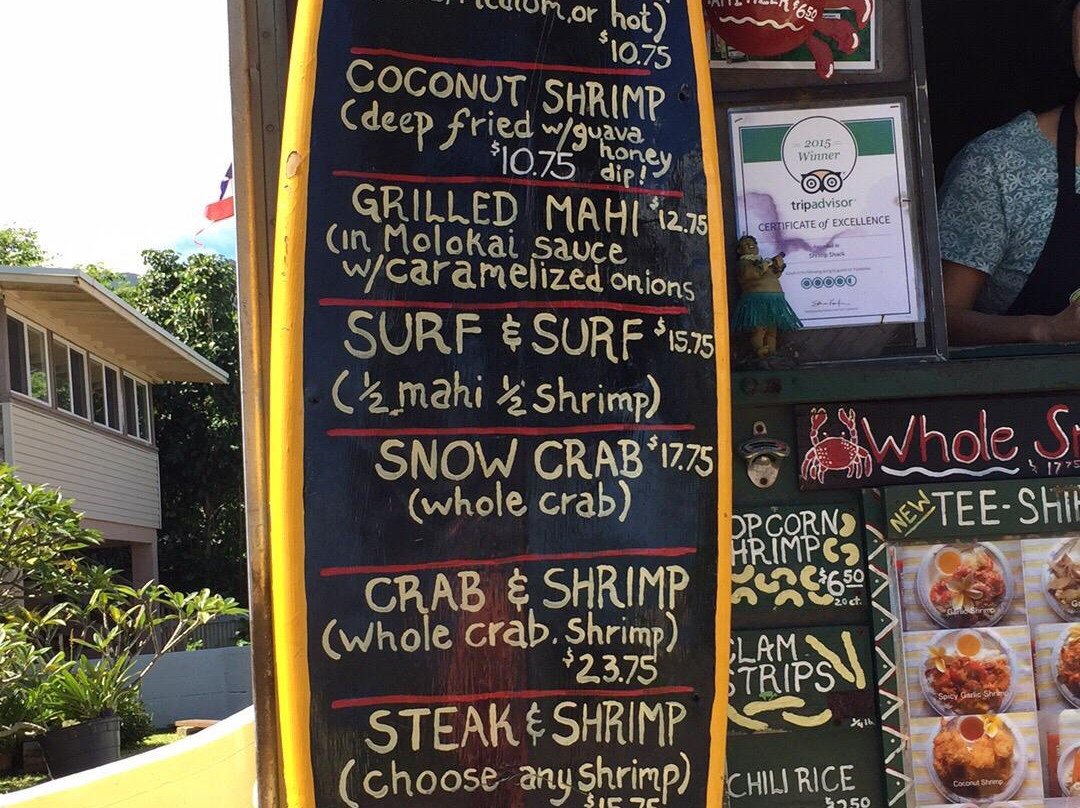 or hot)
$10.75
COCONUT SHRIMP
(deep fried w/guava
honey
$10.75 dip!
GRILLED MAHI $12.75
(in Molokai sauce
w/caramelized onions
SURF & SURF $15.75
(½ mahi ½ Shrimp)
SNOW CRAB $17.75
(whole crab)
CRAB & SHRIMP
(whole crab. Shrimp)
$23.75
STEAK & SHRIMP
(choose any shrimp)
$15.75
$6.50
2015
Winner
tripadvisor
CERTIFICATE of EXCELLENCE
Shrimp Shack
Whole
17.75
NEW TEE-SHI
OPCORN
HRIMP
$6.50
20 ct.
CLAM
STRIPS
CHILI RICE
$2.50
Garlic Shrimp
Spicy Garlic Shrimp
Coconut Shrimp